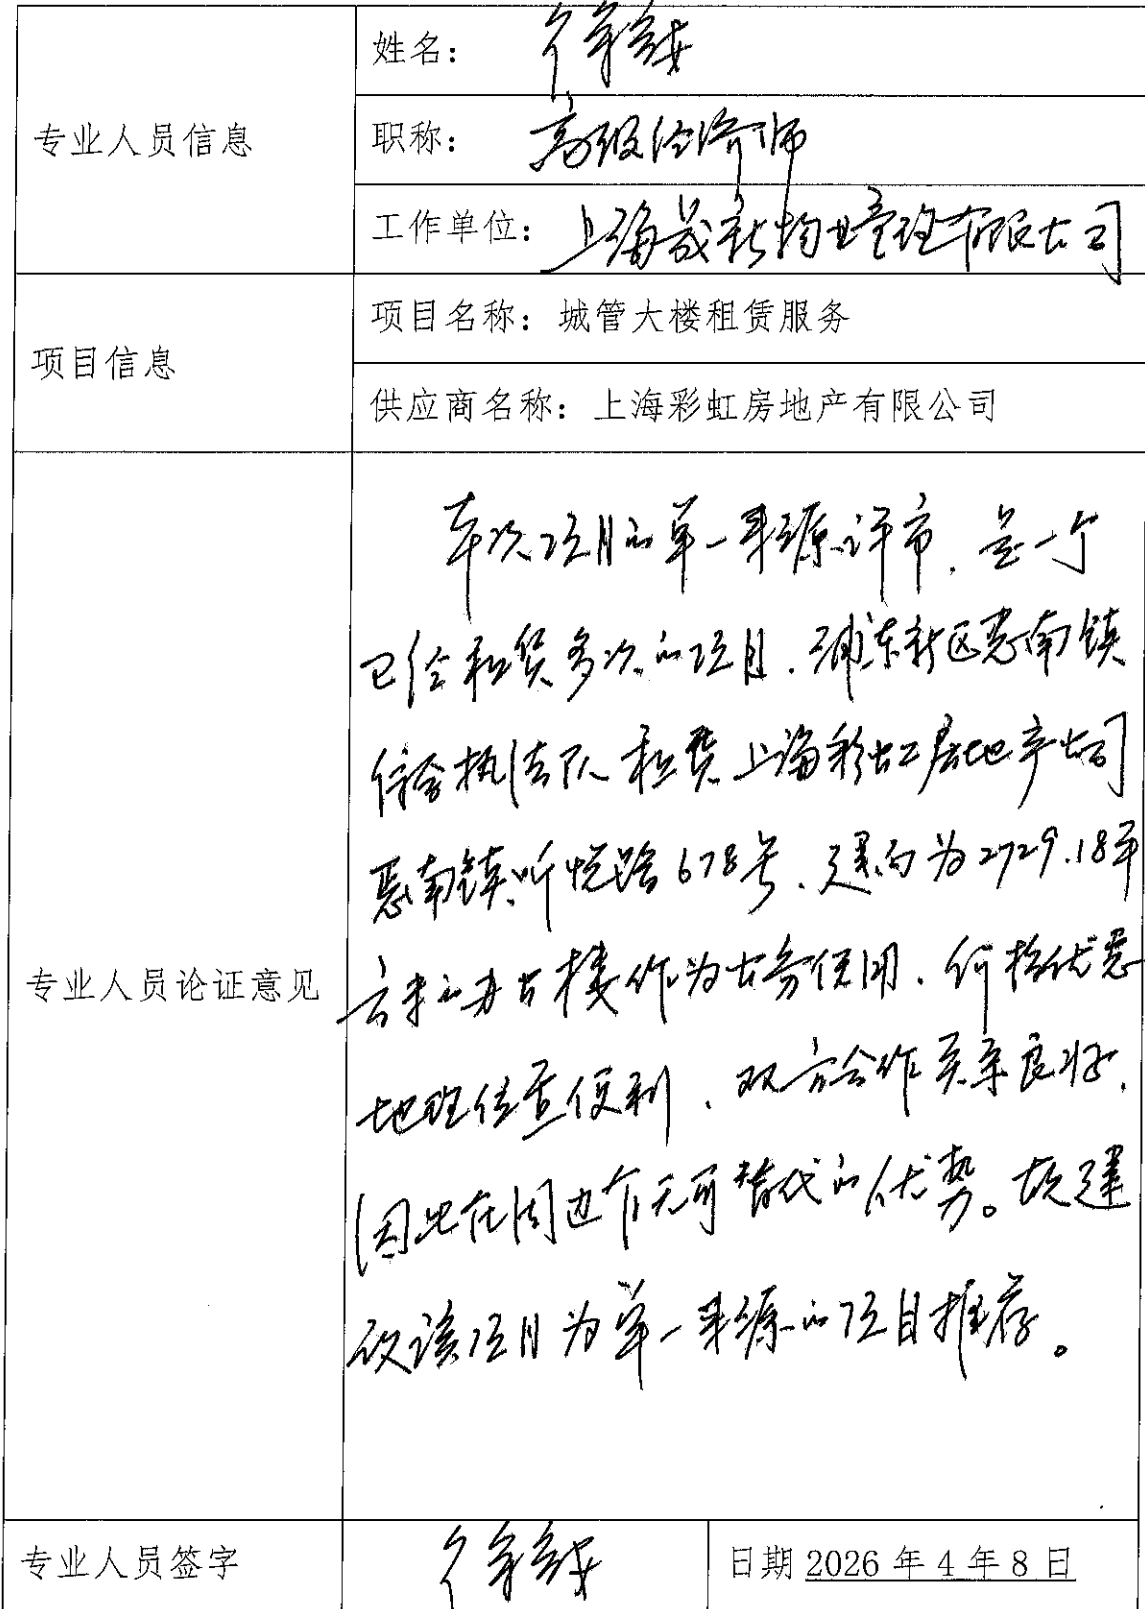 专业人员信息
姓名：徐
职称：高级经济师
工作单位：上海晟新物业管理有限公司
项目信息
项目名称：城管大楼租赁服务
供应商名称：上海彩虹房地产有限公司
专业人员论证意见
本次项目的单一来源评审，是一个
已经租赁多次的项目．浦东新区惠南镇
综合执法队租赁上海彩虹房地产公司
惠南镇听悦路678号、建面为2729.18平
方米的办公楼作为公务使用．价格优惠
地理位置便利．双方合作关系良好．
因此在周边有无可替代的优势。故建
议该项目为单一来源的项目推荐。
专业人员签字
徐
日期 2026 年 4 年 8 日